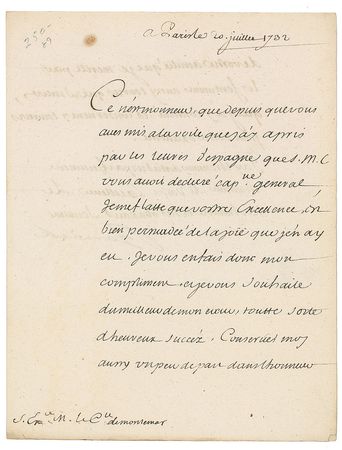 253-
89
a Paris le 20. juillet 1732
Ce nest monsieur, que depuis que vous
aves mis a la voile que j'ay apris
par les lettres d'espagne que S. M. C.
vous avoit declaré cap.ne general
Je me flatte que vostre Excellence, est
bien persuadée de la joie que j'en ay
eu. Je vous en fais donc mon
compliment, et je vous souhaite
du meilleur de mon coeur toutte sorte
d'heureux succéz. Conserves moy
aussy un peu de part dans l'honneur
S. Exce. M. le Cte. de montemar